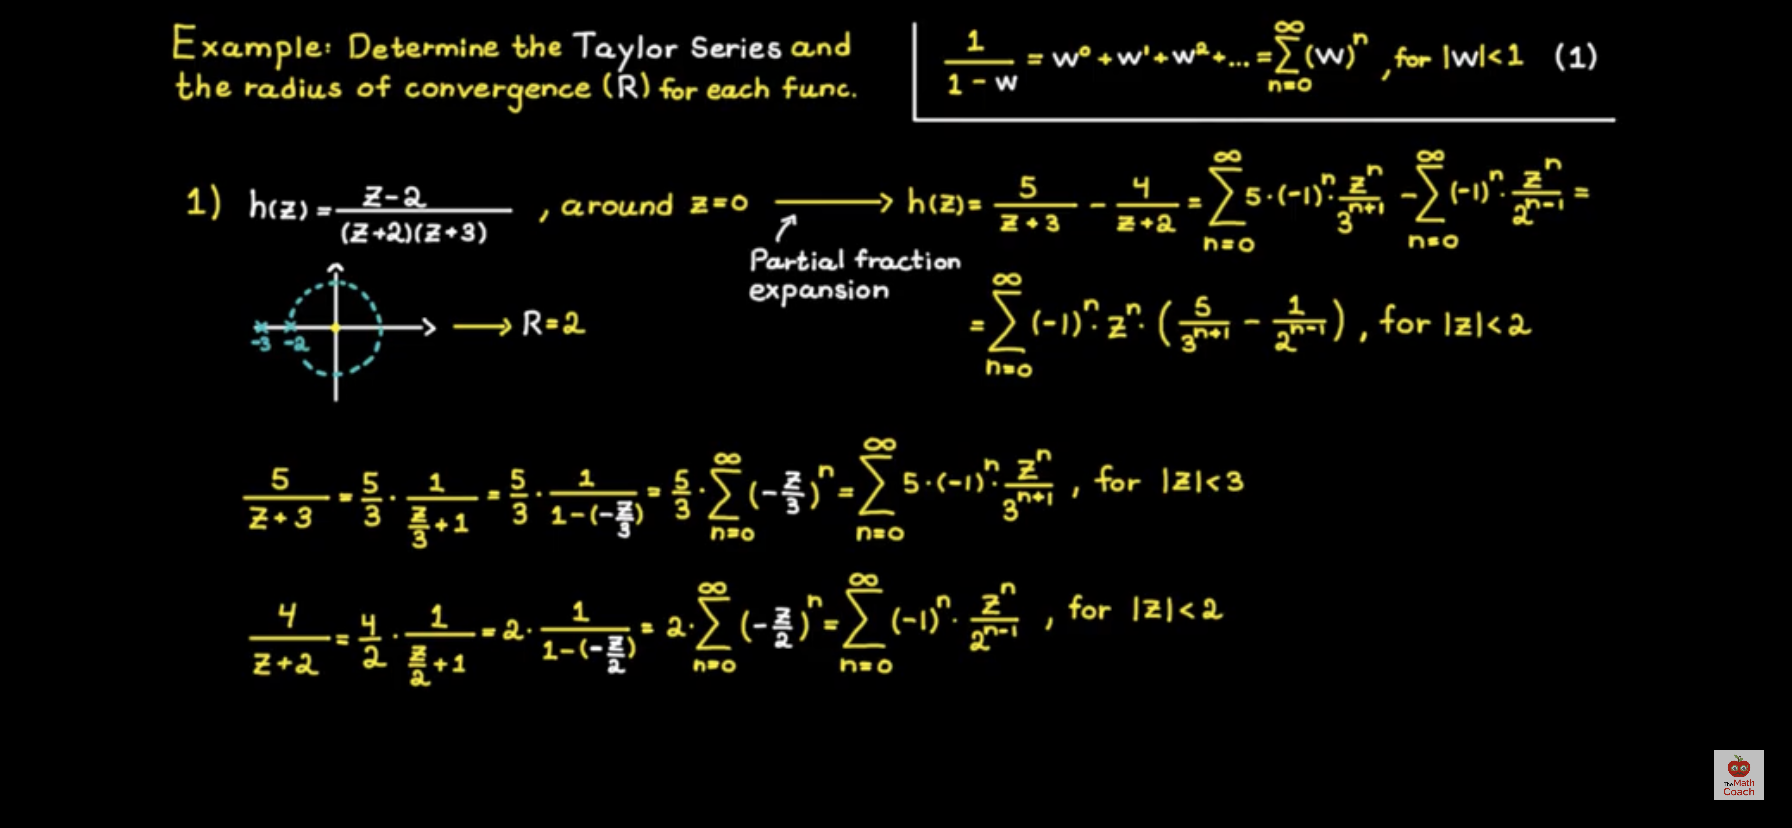 Example: Determine the Taylor Series and
the radius of convergence (R) for each func.
1/(1 - w) = w⁰ + w¹ + w² + ... = ∑_{n=0}^{∞} (w)ⁿ, for |w| < 1 (1)
1) h(z) = (z-2)/((z+2)(z+3)), around z=0 → h(z) = 5/(z+3) - 4/(z+2) = ∑_{n=0}^{∞} 5·(-1)ⁿ· zⁿ/3ⁿ⁺¹ - ∑_{n=0}^{∞} (-1)ⁿ· zⁿ/2ⁿ⁻¹ =
Partial fraction
expansion
= ∑_{n=0}^{∞} (-1)ⁿ· zⁿ· (5/3ⁿ⁺¹ - 1/2ⁿ⁻¹), for |z| < 2
-3 -2 → R=2
5/(z+3) = 5/3 · 1/(z/3 + 1) = 5/3 · 1/(1-(-z/3)) = 5/3 · ∑_{n=0}^{∞} (-z/3)ⁿ = ∑_{n=0}^{∞} 5·(-1)ⁿ· zⁿ/3ⁿ⁺¹, for |z| < 3
4/(z+2) = 4/2 · 1/(z/2 + 1) = 2· 1/(1-(-z/2)) = 2· ∑_{n=0}^{∞} (-z/2)ⁿ = ∑_{n=0}^{∞} (-1)ⁿ· zⁿ/2ⁿ⁻¹, for |z| < 2
The Math
Coach